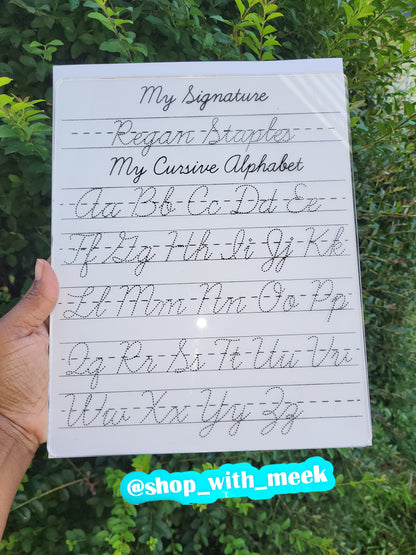 My Signature
Regan Staples
My Cursive Alphabet
Aa Bb Cc Dd Ee
Ff Gg Hh Ii Jj Kk
Ll Mm Nn Oo Pp
Qq Rr Ss Tt Uu Vv
Ww Xx Yy Zz
@shop_with_meek